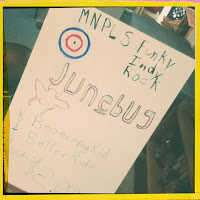 MNPLS Funky
Indy
Rock
Junebug
Boomerang Kid
Better Ride